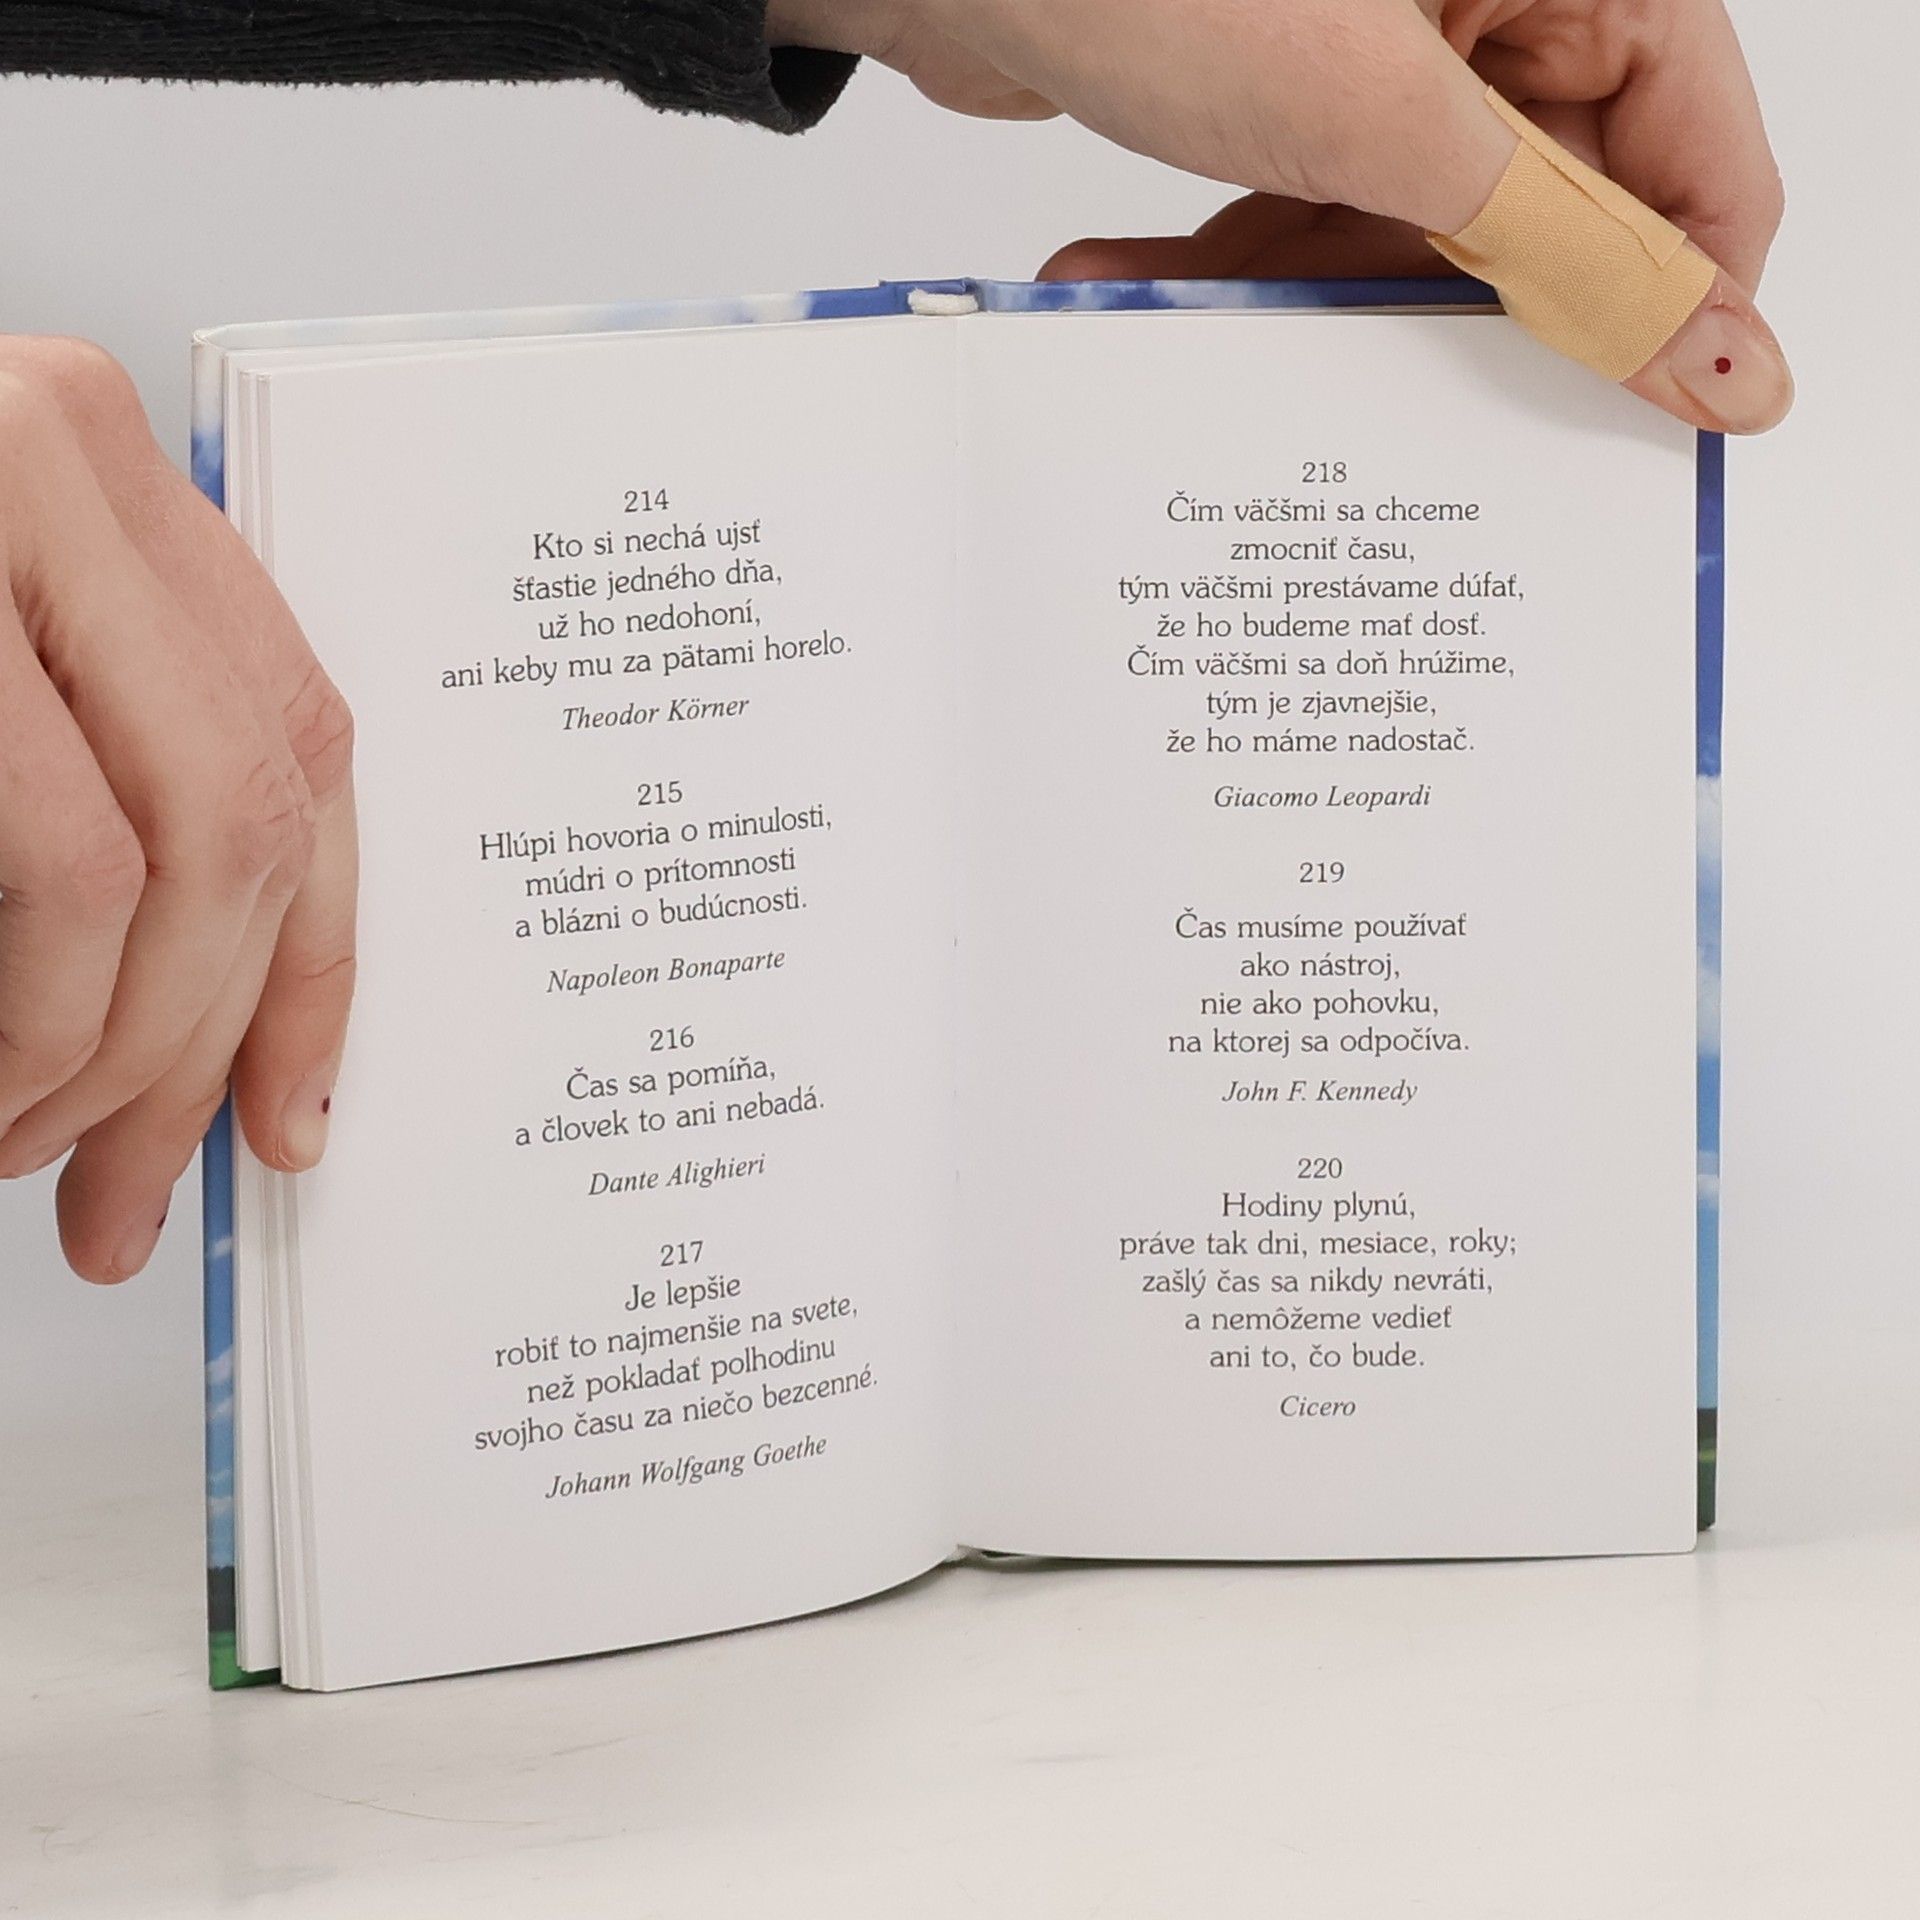 214
Kto si nechá ujsť
šťastie jedného dňa,
už ho nedohoní,
ani keby mu za pätami horelo.
Theodor Körner
215
Hlúpi hovoria o minulosti,
múdri o prítomnosti
a blázni o budúcnosti.
Napoleon Bonaparte
216
Čas sa pomíňa,
a človek to ani nebadá.
Dante Alighieri
217
Je lepšie
robiť to najmenšie na svete,
než pokladať polhodinu
svojho času za niečo bezcenné.
Johann Wolfgang Goethe
218
Čím väčšmi sa chceme
zmocniť času,
tým väčšmi prestávame dúfať,
že ho budeme mať dosť.
Čím väčšmi sa doň hrúžime,
tým je zjavnejšie,
že ho máme nadostač.
Giacomo Leopardi
219
Čas musíme používať
ako nástroj,
nie ako pohovku,
na ktorej sa odpočíva.
John F. Kennedy
220
Hodiny plynú,
práve tak dni, mesiace, roky;
zašlý čas sa nikdy nevráti,
a nemôžeme vedieť
ani to, čo bude.
Cicero